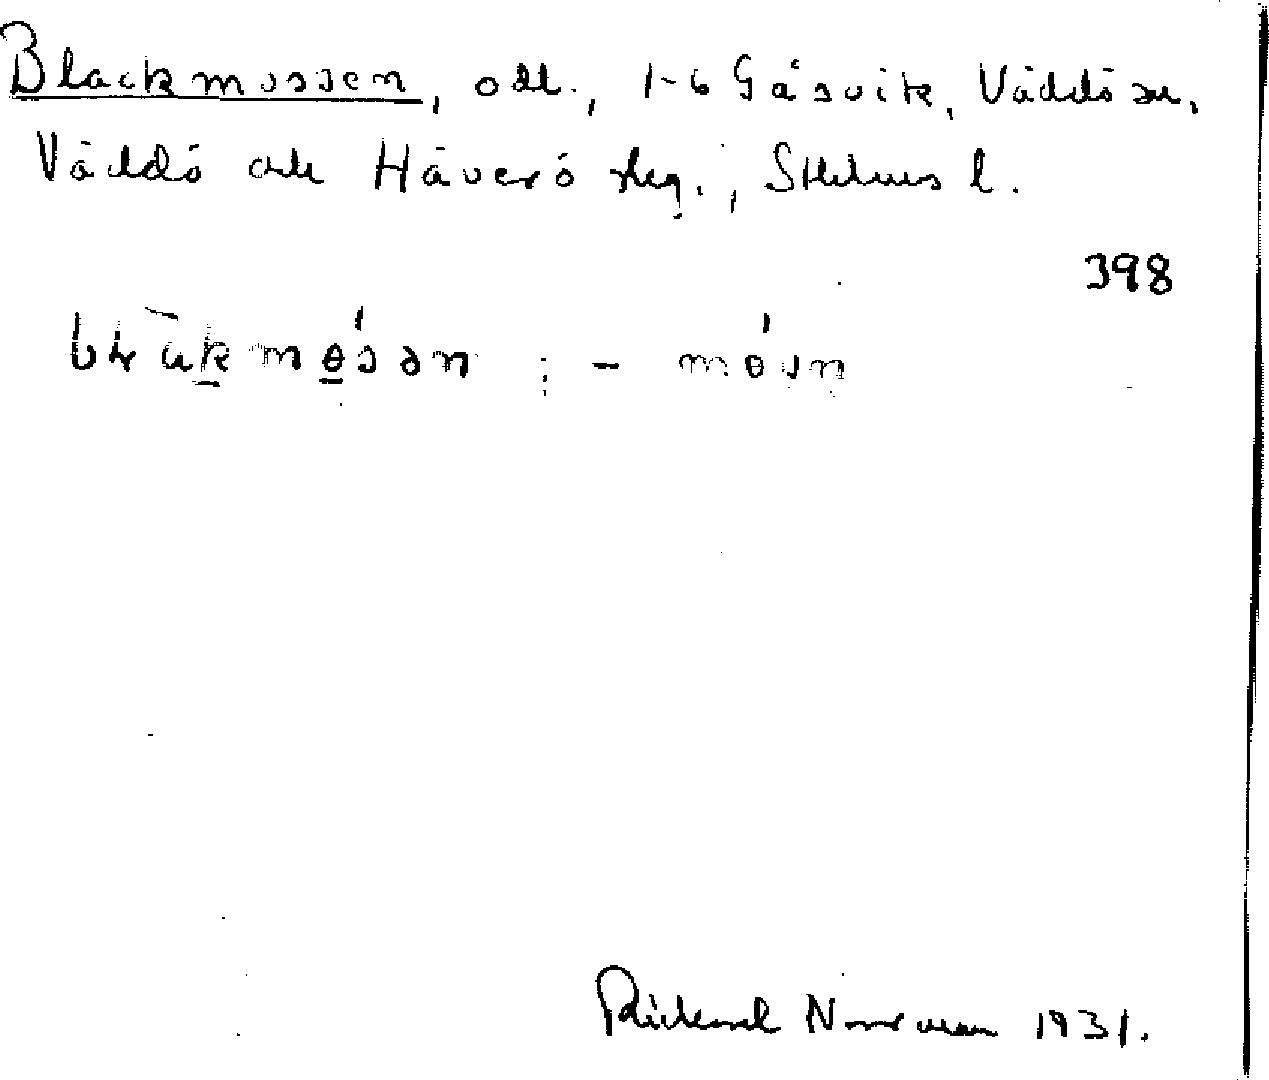 Blackmossen, odl., 1-6 Gåsvik, Väddö sn,
Väddö och Häverö skg., Sthlms l.
398
blakmosən : – mosn
Rickard Norrman 1931.